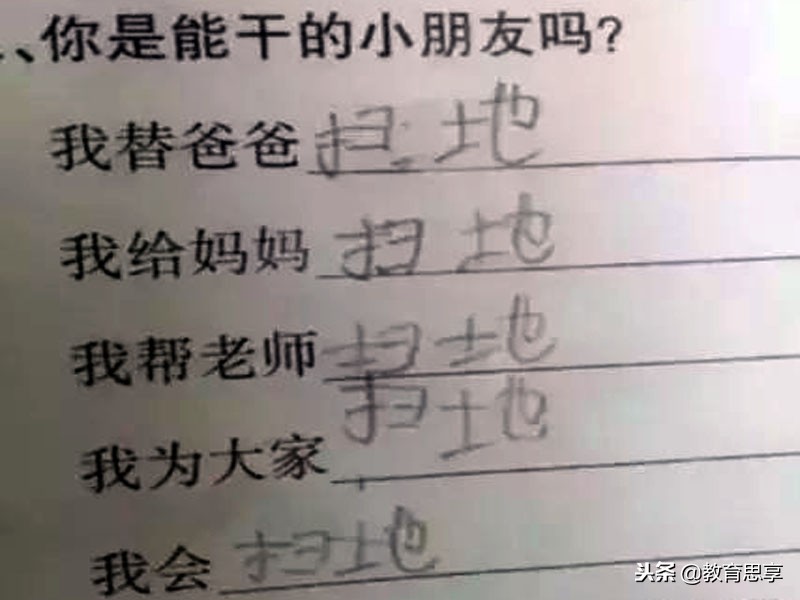 、你是能干的小朋友吗?
我替爸爸扫地
我给妈妈扫地
我帮老师扫地
我为大家扫地
我会扫地
头条 @教育思享